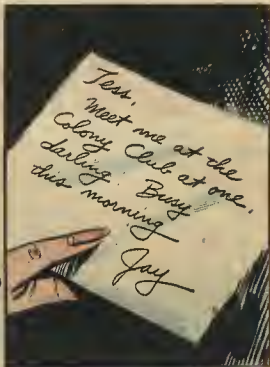 Tess,
Meet me at the
Colony Club at one,
darling. Busy
this morning
Jay